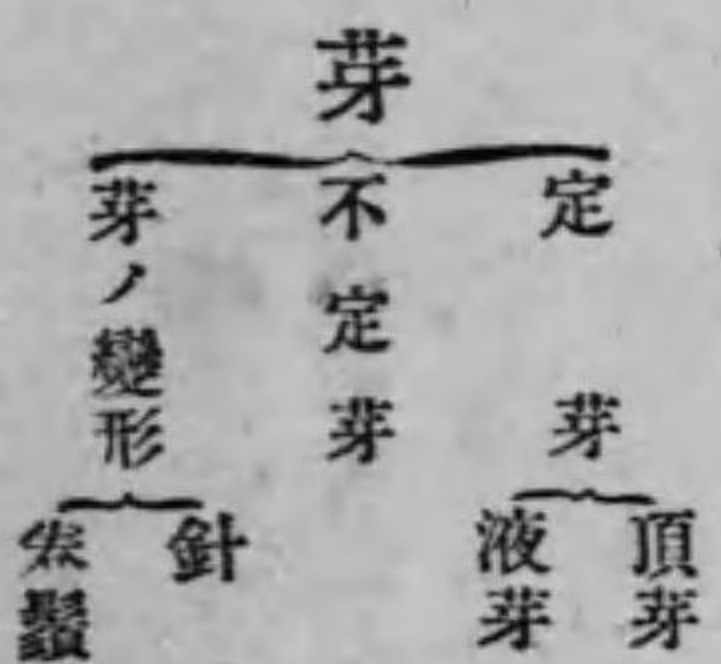 芽
定芽
頂芽
液芽
不定芽
芽ノ變形
針
鬚